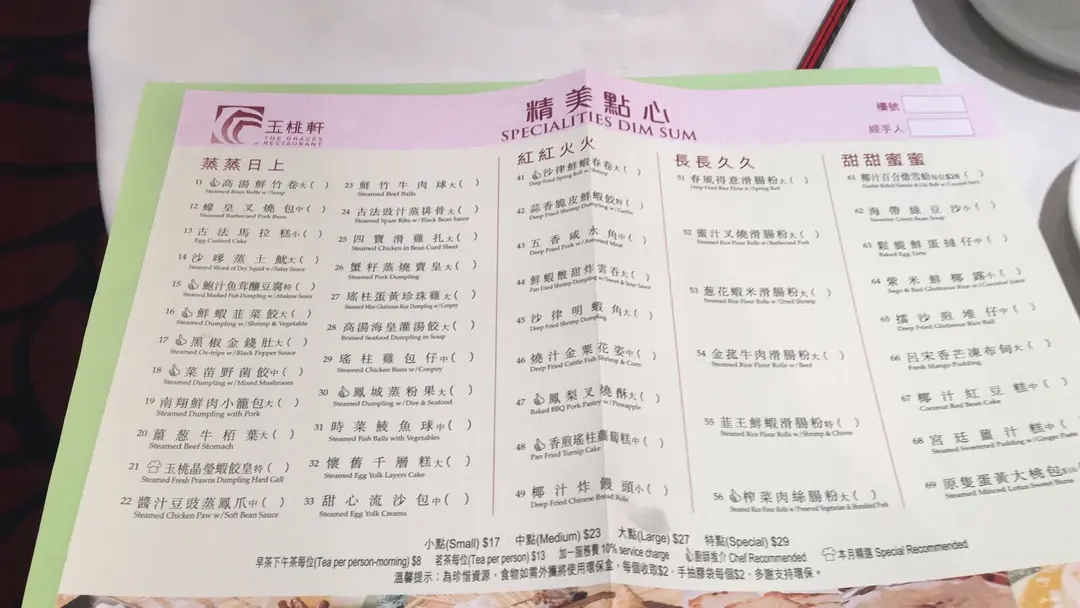 玉桃軒
THE GRACES
RESTAURANT
精美點心
SPECIALITIES DIM SUM
檯號
經手人
蒸蒸日上
11 高湯鮮竹卷大( )
Steamed Bean Rolls w/Soup
12 蠔皇叉燒包中( )
Steamed Barbecued Pork Buns
13 古法馬拉糕小( )
Egg Custard Cake
14 沙嗲蒸土魷大( )
Steamed Sliced of Dry Squid w/Satay Sauce
15 鮑汁魚茸釀豆腐特( )
Steamed Mashed Fish Dumpling w/Abalone Sauce
16 鮮蝦韮菜餃大( )
Steamed Dumpling w/Shrimp & Vegetable
17 黑椒金錢肚大( )
Steamed Ox-trips w/Black Pepper Sauce
18 菜苗野菌餃中( )
Steamed Dumpling w/Mixed Mushroom
19 南翔鮮肉小籠包大( )
Steamed Dumpling with Pork
20 薑葱牛栢葉大( )
Steamed Beef Stomach
21 玉桃晶瑩蝦餃皇特( )
Steamed Fresh Prawns Dumpling Hard Gall
22 醬汁豆豉蒸鳳爪中( )
Steamed Chicken Paw w/Soft Bean Sauce
23 鮮竹牛肉球大( )
Steamed Beef Balls
24 古法豉汁蒸排骨大( )
Steamed Spare Ribs w/Black Bean Sauce
25 四寶滑雞扎大( )
Steamed Chicken in Bean Curd Sheet
26 蟹籽蒸燒賣皇大( )
Steamed Pork Dumpling
27 瑤柱蛋黃珍珠雞大( )
Steamed Mini Glutinous Rice Dumpling w/Conpoy
28 高湯海皇灌湯餃大( )
Braised Seafood Dumpling in Soup
29 瑤柱雞包仔中( )
Steamed Chicken Buns w/Conpoy
30 鳳城蒸粉果大( )
Steamed Dumpling w/Dire & Seafood
31 時菜鯪魚球中( )
Steamed Fish Balls with Vegetables
32 懷舊千層糕大( )
Steamed Egg Yolk Layers Cake
33 甜心流沙包中( )
Steamed Egg Yolk Creams
紅紅火火
41 沙律鮮蝦春卷大( )
Deep Fried Spring Roll w/Shrimp
42 蒜香脆皮鮮蝦餃特( )
Deep Fried Shrimp Dumpling w/Garlic
43 五香咸水角中( )
Deep Fried Pork w/Assorted Meat
44 鮮蝦酸甜炸雲吞大( )
Pan Fried Shrimp Dumpling w/Sweet & Sour Sauce
45 沙律明蝦角大( )
Deep Fried Shrimp Dumpling
46 燒汁金粟花姿中( )
Deep Fried Cuttle Fish Shrimp & Corn
47 鳳梨叉燒酥大( )
Baked BBQ Pork Pastry w/Pineapple
48 香煎瑤柱蘿蔔糕中( )
Pan Fried Turnip Cake
49 椰汁炸饅頭小( )
Deep Fried Chinese Bread Rols
長長久久
51 春風得意滑腸粉大( )
Deep Fried Rice Flour w/Spring Roll
52 蜜汁叉燒滑腸粉大( )
Steamed Rice Flour Rolls w/Barbecued Pork
53 葱花蝦米滑腸粉大( )
Steamed Rice Flour Rolls w/Dried Shrimp
54 金菰牛肉滑腸粉大( )
Steamed Rice Flour Rolls w/Beef
55 韮王鮮蝦滑腸粉特( )
Steamed Rice Flour Rolls w/Shrimp & Chives
56 榨菜肉絲腸粉大( )
Steamed Rice Flour Rolls w/Preserved Vegetarian & Shredded Pork
甜甜蜜蜜
61 椰汁百合燉雪蛤每位$28( )
62 海帶綠豆沙小( )
63 鬆脆鮮蛋撻仔中( )
Baked Egg Tarts
64 紫米鮮椰露小( )
Sago & Red Glutinous Rice w/Coconut Juice
65 擂沙煎堆仔中( )
Deep Fried Glutinous Rice Ball
66 呂宋香芒凍布甸大( )
Fresh Mango Pudding
67 椰汁紅豆糕中( )
Coconut Red Bean Cake
68 宮廷薑汁糕中(
Steamed Sweetened Pudding w/Ginger
69 原隻蛋黃大桃包
Steamed Minced Lotus Sweet Buns
小點(Small) $17 中點(Medium) $23 大點(Large) $27 特點(Special) $29
早茶下午茶每位(Tea per person-morning) $8 茗茶每位(Tea per person) $13 加一服務費 10% service charge 廚師推介 Chef Recommended 本月精選 Special Recommended
溫馨提示：為珍惜資源，食物如需外攜將使用環保盒，每個收取$2，手抽膠袋每個$2，多謝支持環保。